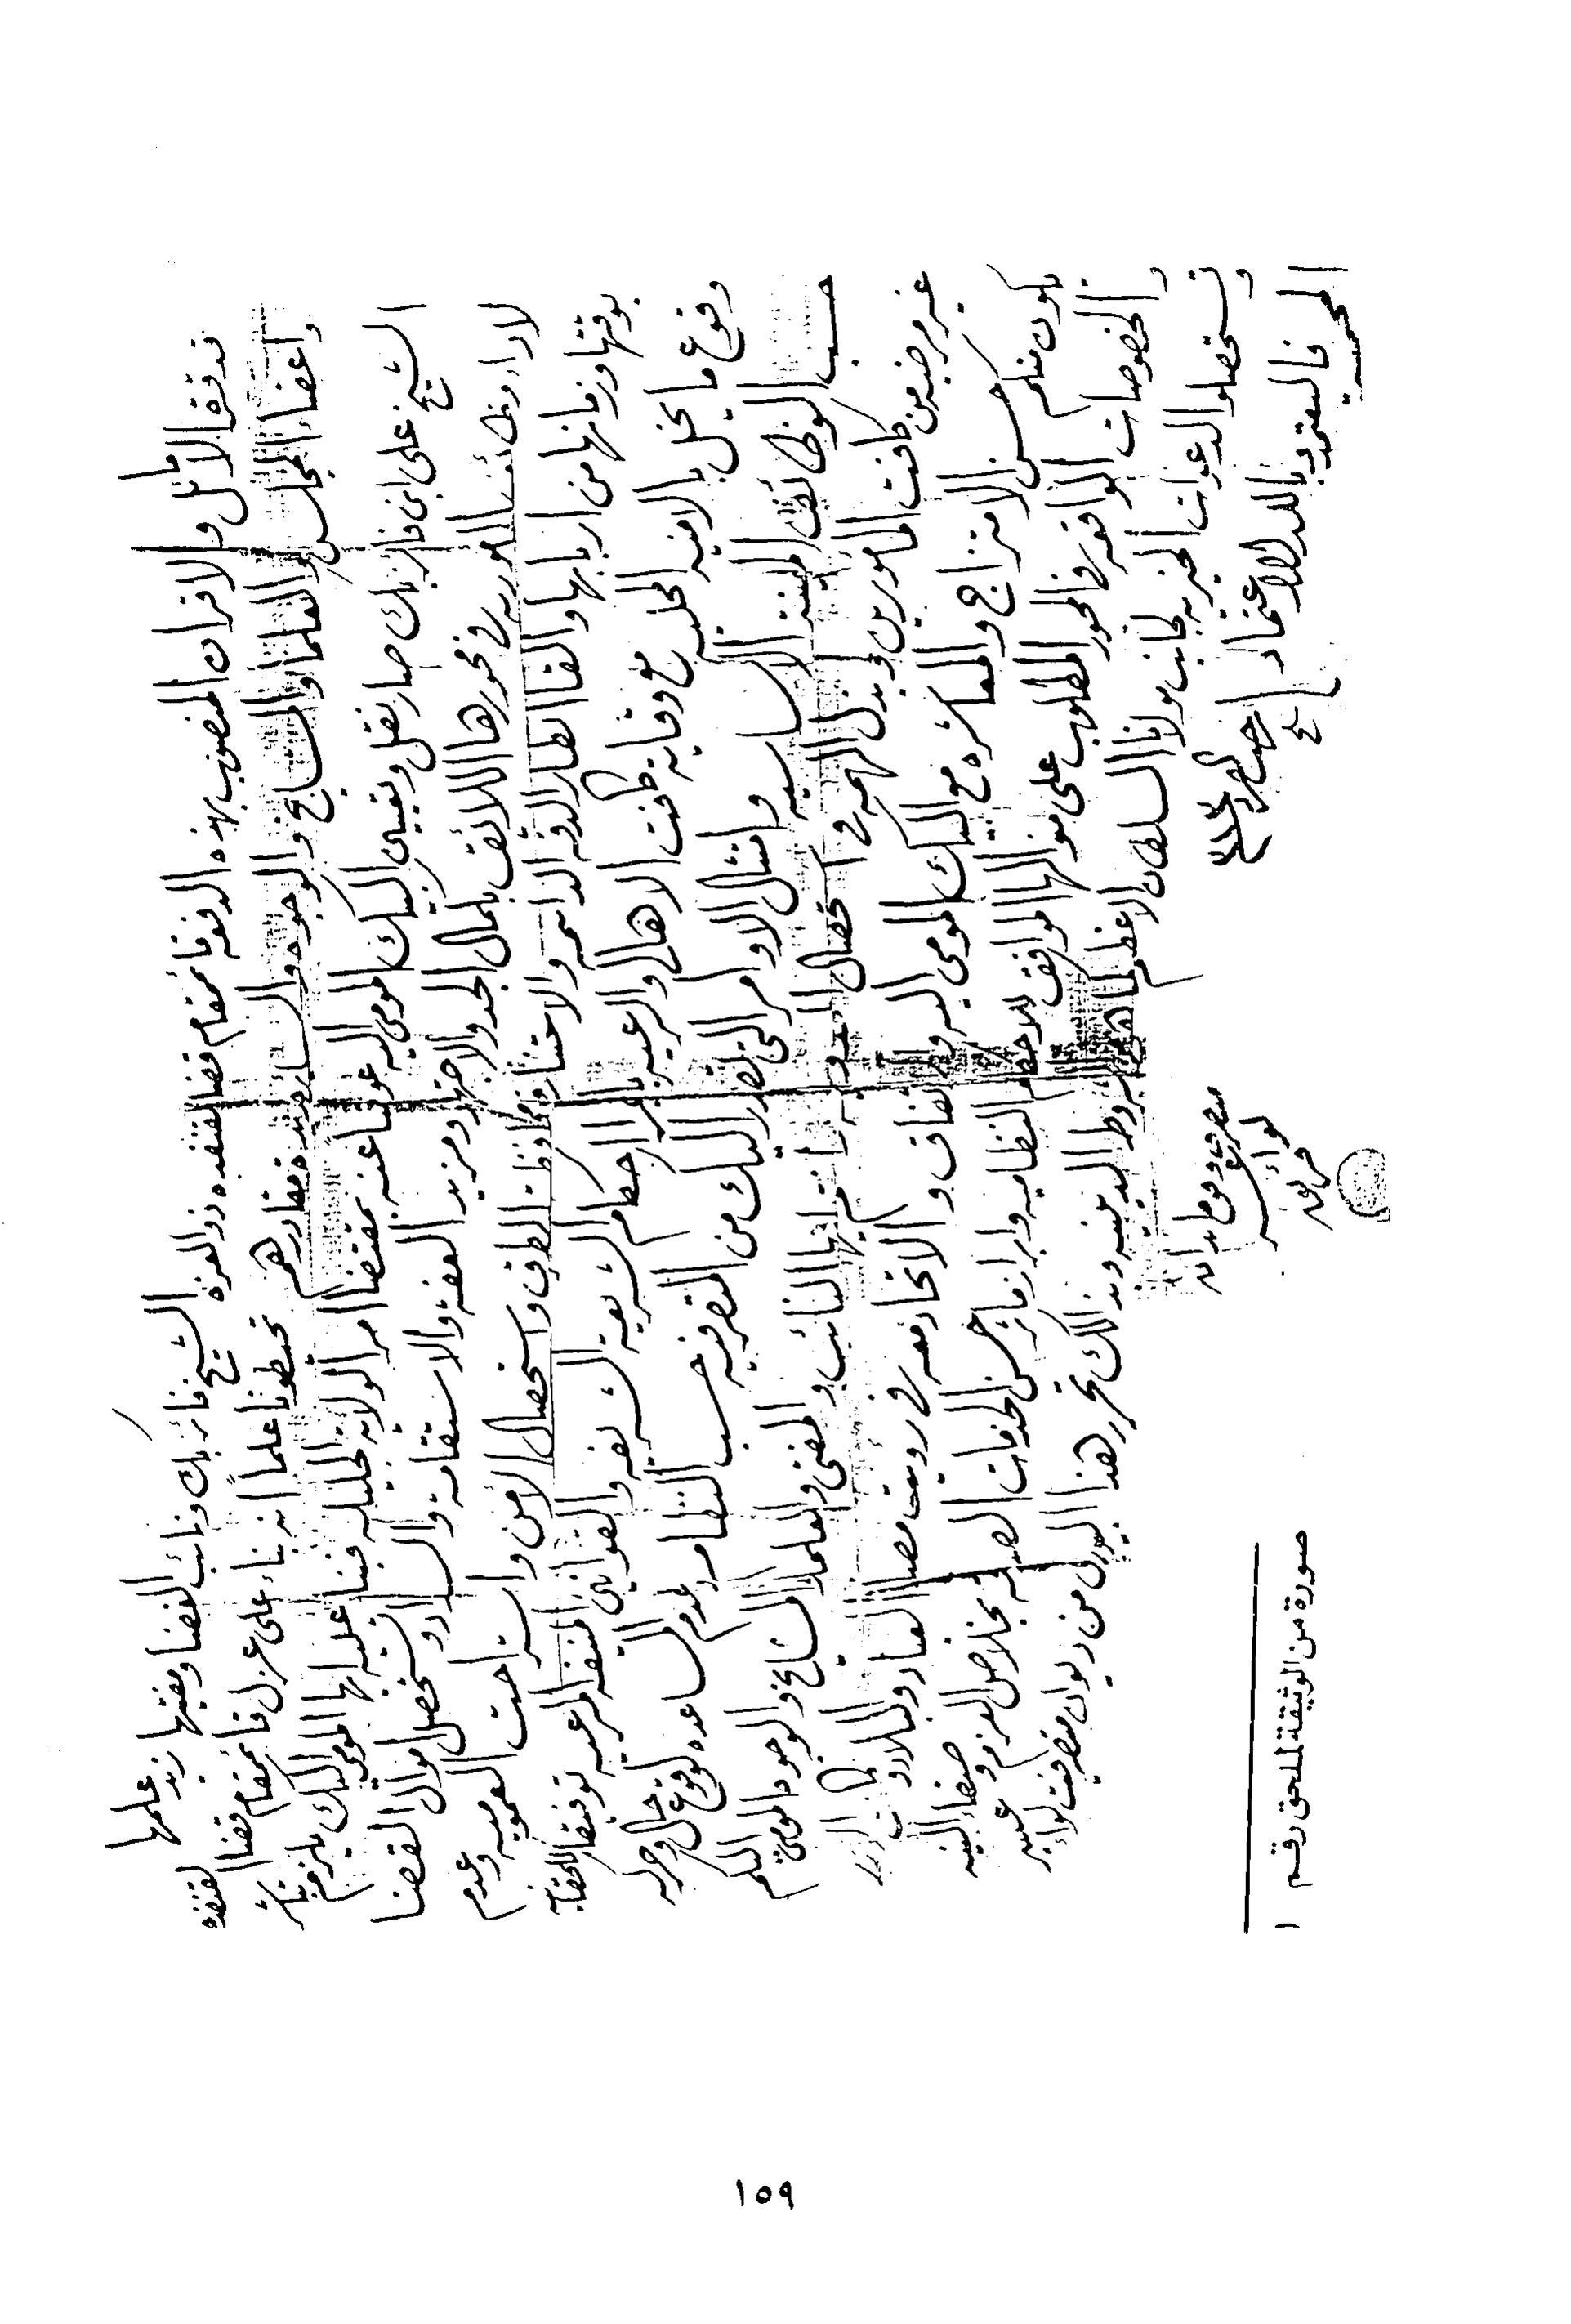 قدوة الأماثل والاقران المنصوب بهذه الدفعه قائمقام قضا القنفده ذو العزه الشيخ فائز بك ونائب القضا ومفتيها زيد علمها
واعضاء المجلس والعلما والمشايخ والوجوه والسائره زيد مقادرهم تحيطونا علماً انه بناء على عزل قائمقام قضا القنفذه
الشيخ علي ابن فائز بك صار نقل وتعيين البيك المومى اليه عوضا عنه بمقتضا امر الولاية الجليله فبناء عليه ايها المومى اليك يلزم تباشر
لاداء وظائف المأموريه في محورها اللائق بكمال الجد والاجتهاد ومزيد العفه والاستقامه والسداد وتستحصل اموال القضا
بوقتها وزمانها من اربابها والقا انظار الدقه الدائمه والاعتنا ومحافظت الطرق واستحصال الامن واستراحت العموميه وعدم
وقوع ما يخل بالامنيه المحليه مع وقاية كافت الاهالي والرعيه باجرا احكام الشريعة الشريفه والقوانين المنيفه المرعيه توفيقا للحقانيه
حسب الوظائف المبينه الاساسيه وامتثال الاوامر التي تصدر اليك من المتصرفيه حسب النظام وعدم المساعده لوقوع حال وحركه
غير مرضيه من كافت المأمورين وبذل الهمه في استحصال وانتم ايها النائب والمفتي والعلما والمشايخ والوجوه المومى اليكم
يكون منكم حسن الامتزاج والمعاشره مع البيك المومى اليه والاتفاق والاتحاد معه في رويت مصالح العباد والبلاد
والخصوصات الواقعه في المحور المطلوب على منوالها الموافق للاحكام النظاميه وابراز مآثر حسن الخدمات الصادقه بخلاص العزم وصفاء النيه
وتستحصلو الدعوات الخيريه لجانب مولانا السلطان الاعظم كما هي شروط الديانه وبذالك تحرر هذا البيورلدي من ديوان متصرفيت لواء عسير
المحميه فاليعتمد بالله الاعتماد
متصرف وقومندان
لواء عسير
فريق
صورة من الوثيقة لملحق رقم ١
١٥٩